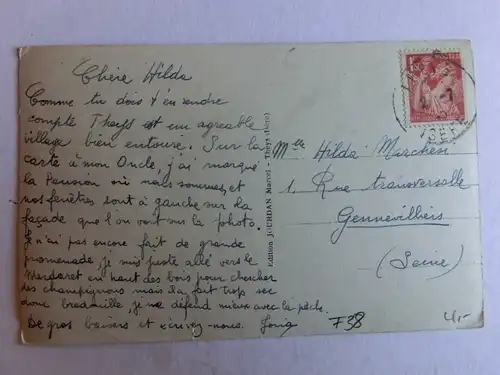 Chère Hilda
Comme tu dois t'en rendre
compte Theys est un agreable
village bien entouré. Sur la
carte à mon Oncle, j'ai marqué
la Pension où nous sommes, et
nos fenêtres sont à gauche sur la
façade que l'on voit sur la photo.
Je n'ai pas encore fait de grande
promenade, je suis juste allé vers le
Merdaret en haut des bois pour chercher
des champignons mais il a fait trop sec
donc bredouille, je me défend mieux avec la pêche.
De gros baisers et écrivez-nous.
Edition JOURDAN Marcel - Theys (Isère)
Mlle Hilda Marchesi
1, Rue transversalle
Gennevilliers
(Seine)
F38
4,-
ISERE